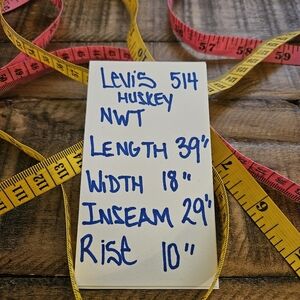 LEVIS 514
HUSKEY
NWT
LENGTH 39"
WIDTH 18"
INSEAM 29"
RISE 10"